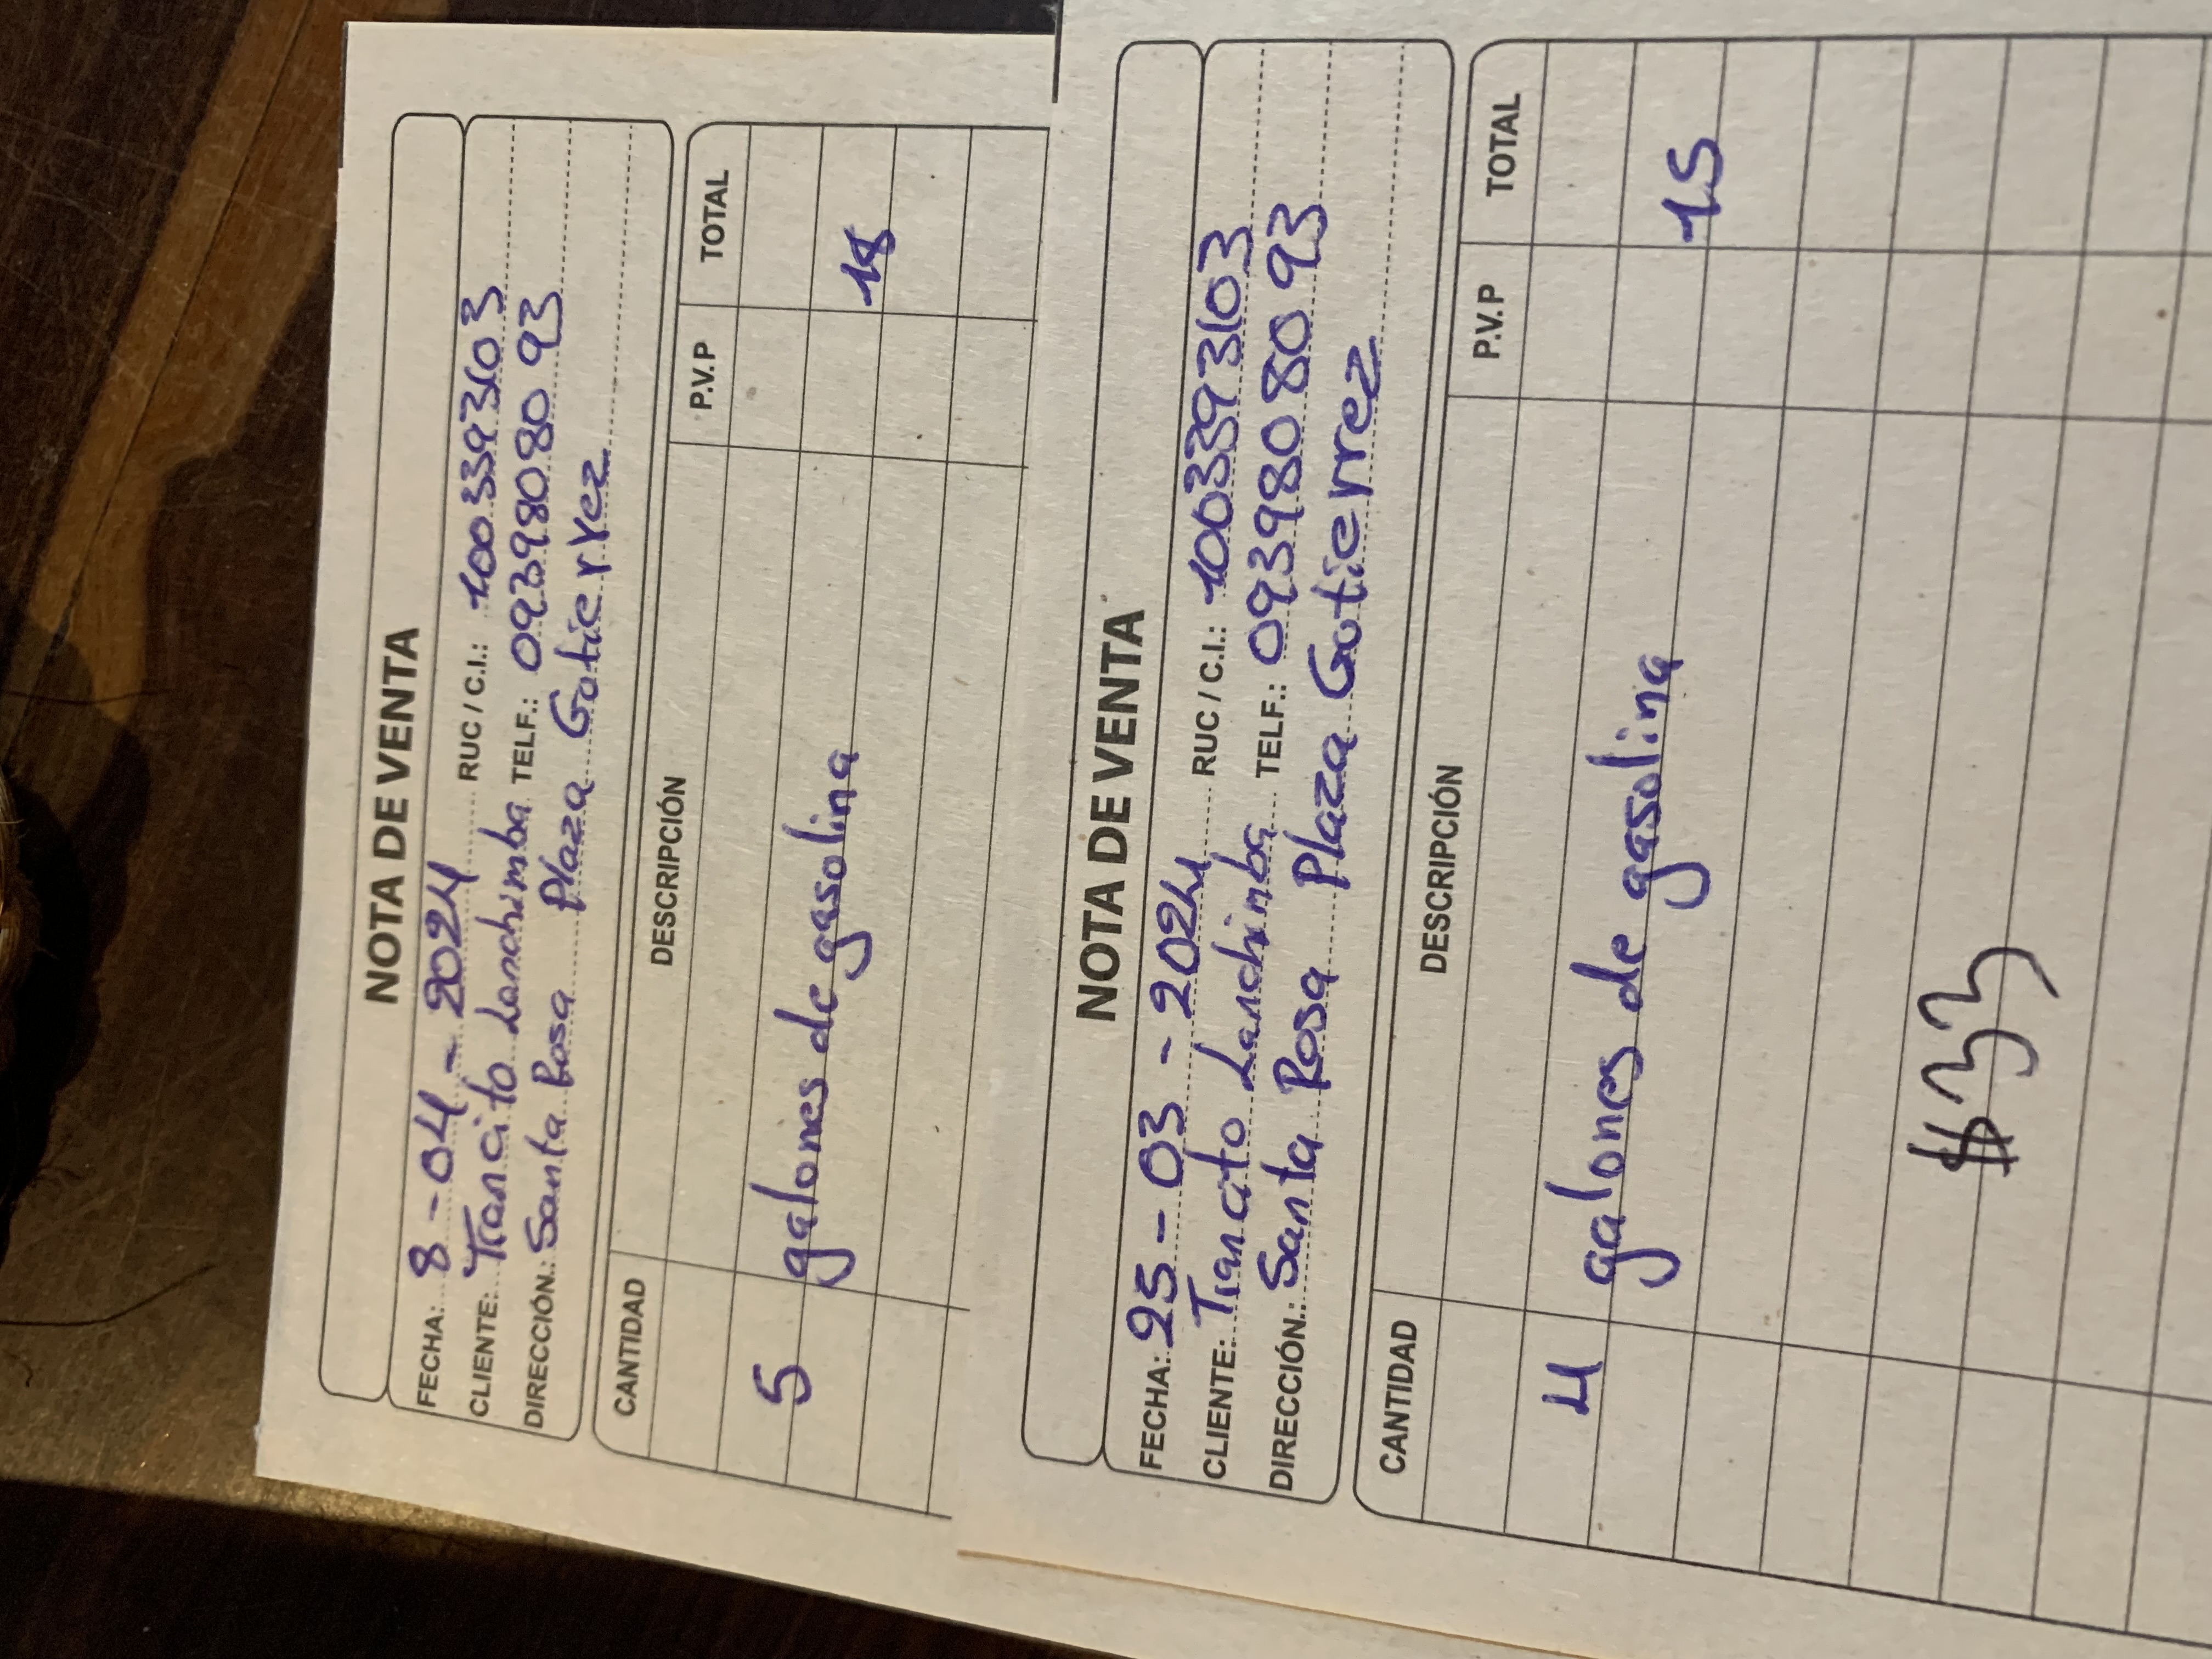 NOTA DE VENTA
FECHA: 8 - 04 - 2024 RUC / C.I.: 1003393103
CLIENTE: Trancito Lanchimba TELF.: 0939808093
DIRECCIÓN.: Santa Rosa Plaza Gotierrez
CANTIDAD DESCRIPCIÓN P.V.P TOTAL
5 galones de gasolina 18
NOTA DE VENTA
FECHA: 25 - 03 - 2024 RUC / C.I.: 1003393103
CLIENTE: Trancito Lanchimba TELF.: 0939808093
DIRECCIÓN.: Santa Rosa Plaza Gotierrez
CANTIDAD DESCRIPCIÓN P.V.P TOTAL
4 galones de gasolina 15
$33